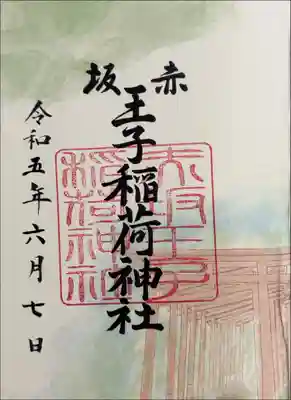 赤坂
王子稲荷神社
令和五年六月七日
赤坂王子
稲荷神社